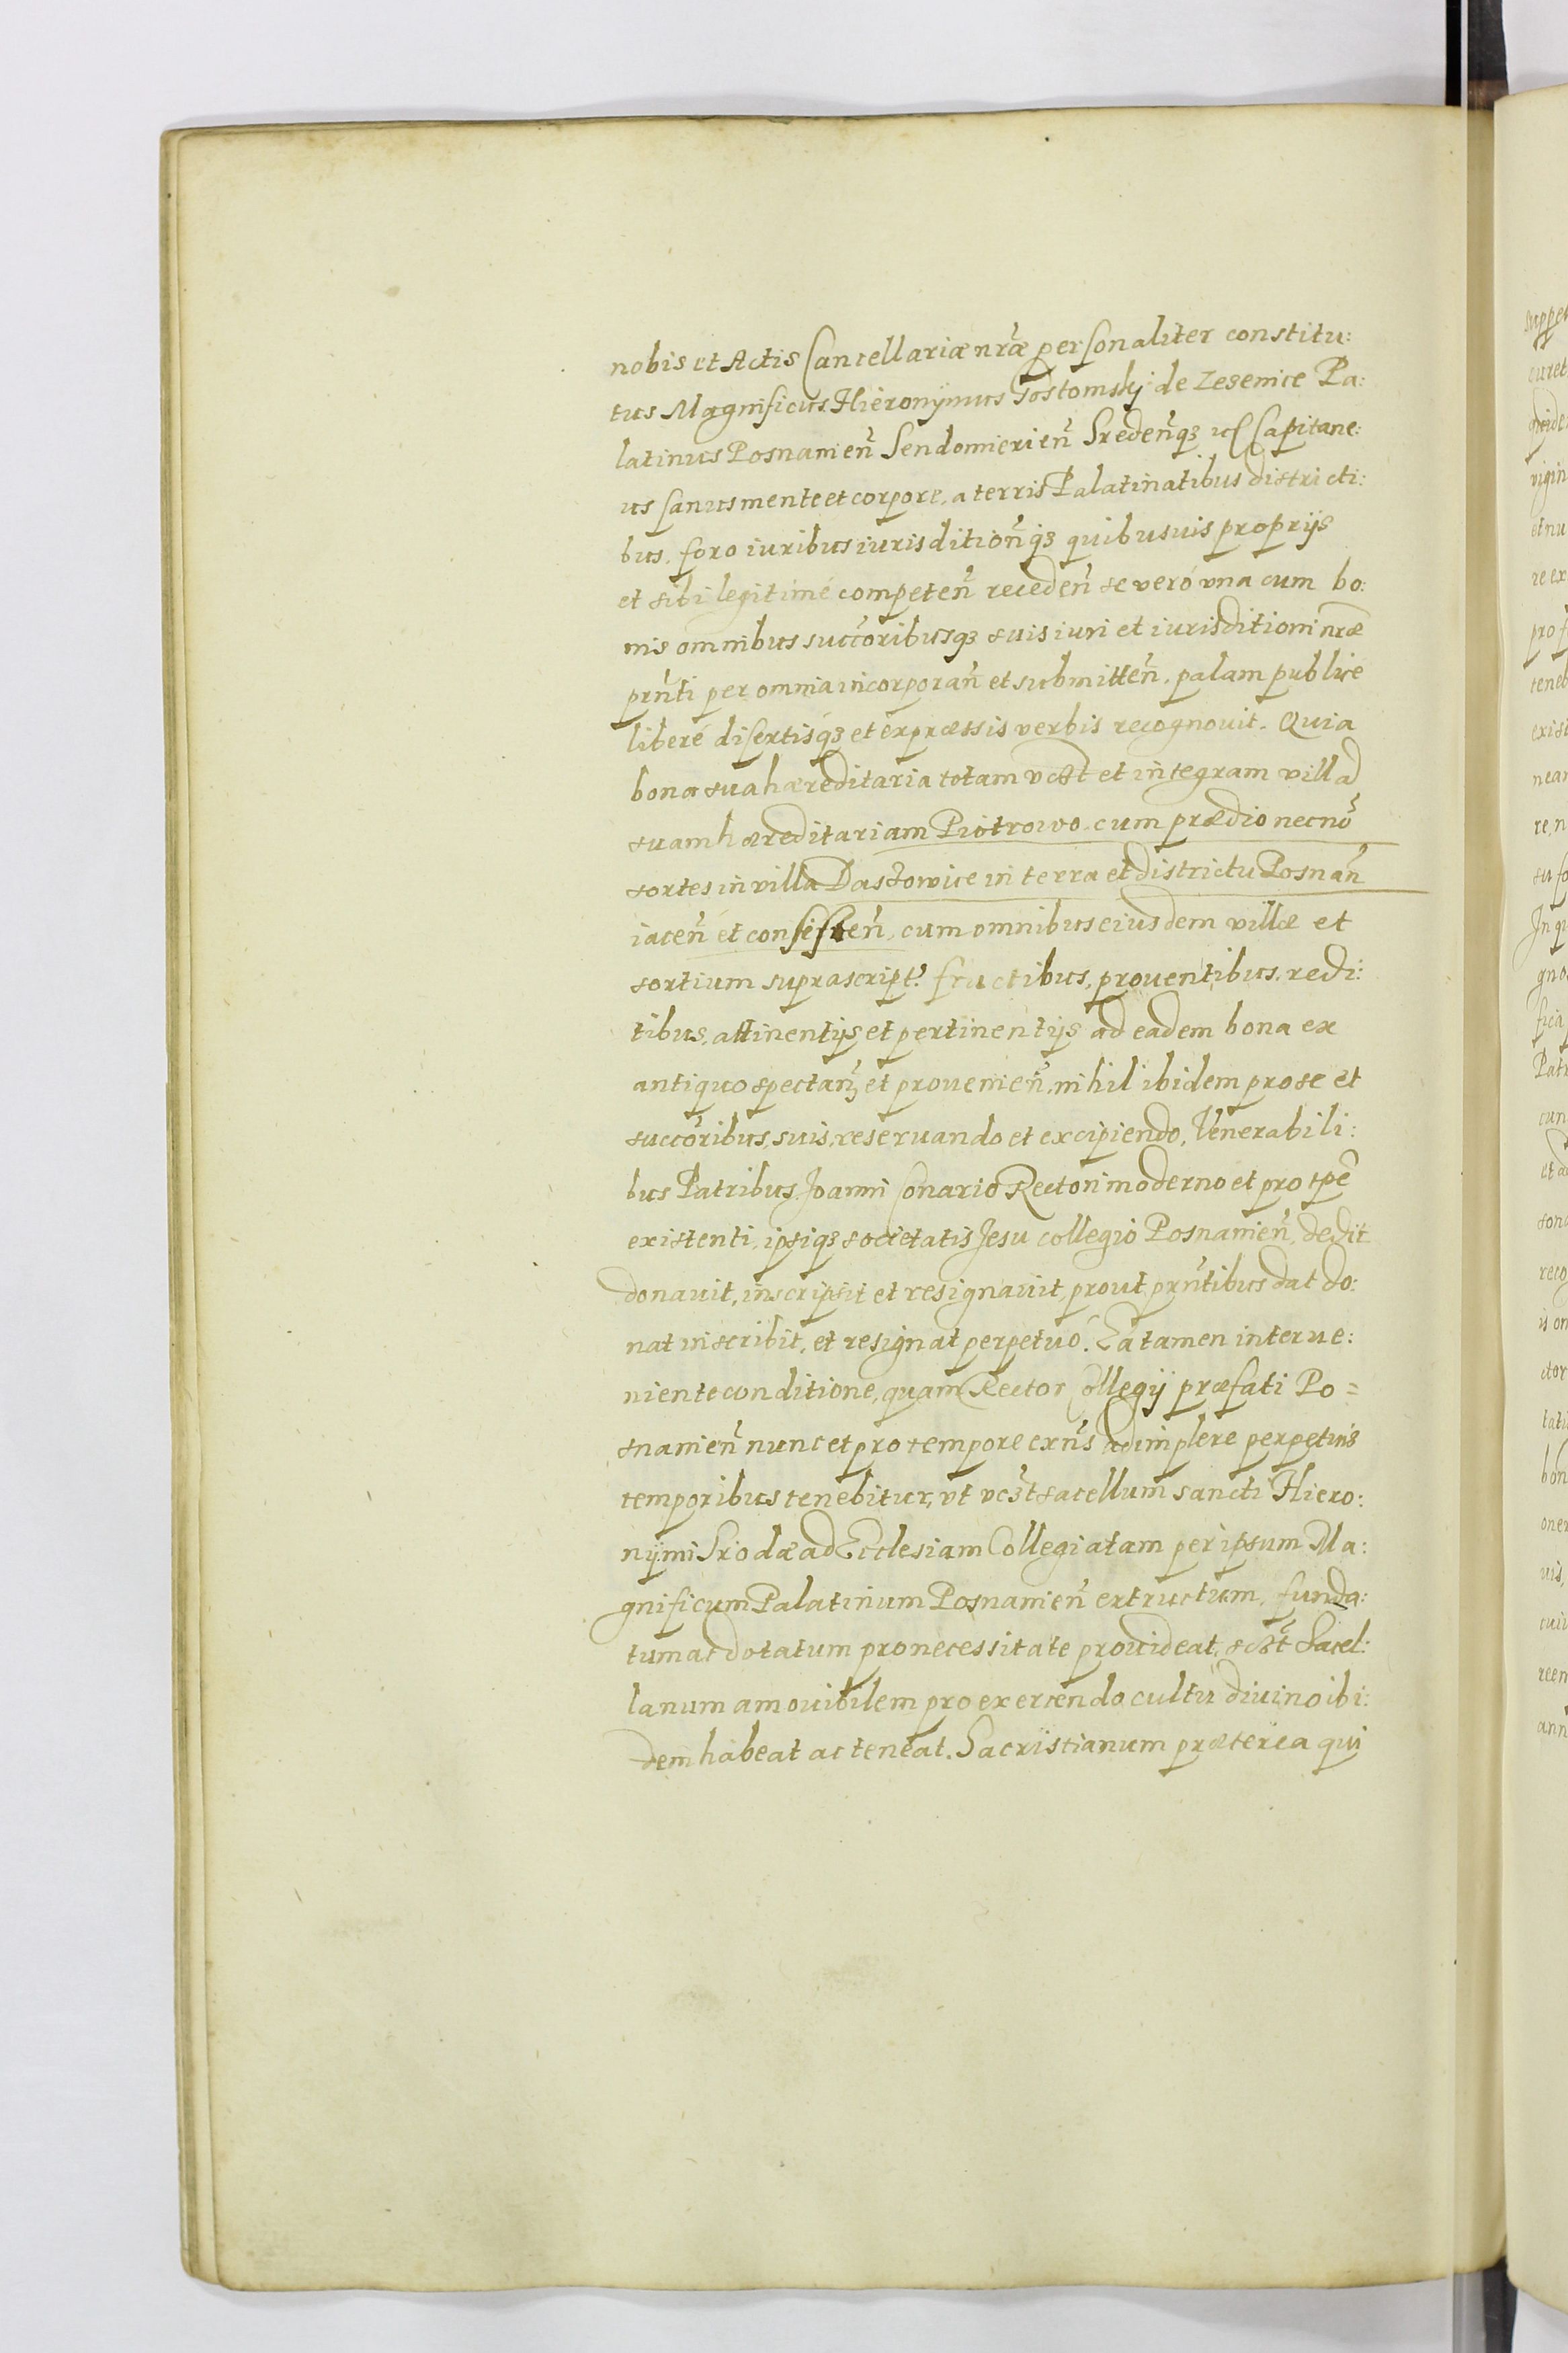 nobis et Actis Cancellariæ nr̃æ personaliter constitu:
tus Magnificus Hieronÿmus Gostomskÿ de Lezenice Pa:
latinus Posnanien̄ Sendomirien̄ Sreden̄q₃ Capitane:
us sanus mente et corpore, a terris Palatinatibus districti:
bus, foro iuribus iurisdition̄q₃ quibusuis proprijs
et sibi legitimé competen̄ receden̄ se veró vna cum bo:
nis omnibus succ̄oribusq₃ suis iuri et iurisditioni nr̃æ
prn̄ti per omnia incorporan̄ et submitten̄, palam publice
liberé disertisq́₃ et expræssis verbis recognouit. Quia
bona sua hæreditaria totam vc₃t et integram villā
suam hæreditariam Piotrowo cum prædio necnō
sortes in villa Daszowice in terra et districtu Posnan̄
iacen̄ et consisten̄, cum omnibus eiusdem villæ et
sortium suprascript. fructibus, prouentibus, redi:
tibus, attinentijs et pertinentijs ad eadem bona ex
antiquo spectan̄ et prouenien̄, nihil ibidem pro se et
succ̄oribus, suis, reseruando et excipiendo, Venerabili:
bus Patribus Joanni Conario Rectori moderno et pro tp̄e
existenti, ipsiq₃ societatis Jesu collegio Posnanien̄, dedit
donauit, inscripsit et resignauit, prout prn̄tibus dat do:
nat inscribit, et resignat perpetuó. Ea tamen interue:
niente conditione, quam Rector Collegij præfati Po=
snanien̄ nunc et pro tempore exn̄s adimplere perpetuis
temporibus tenebitur, vt vc₃t sacellum sancti Hiero:
nÿmi Sriodæ ad Ecclesiam Collegiatam per ipsum Ma:
gnificum Palatinum Posnanien̄ extructum, funda:
tum ac dotatum pro necessitate prouideat, sc₃t Sacel:
lanum amouibilem pro exercendo cultu diuino ibi:
dem habeat ac teneat. Sacristianum præterea qui